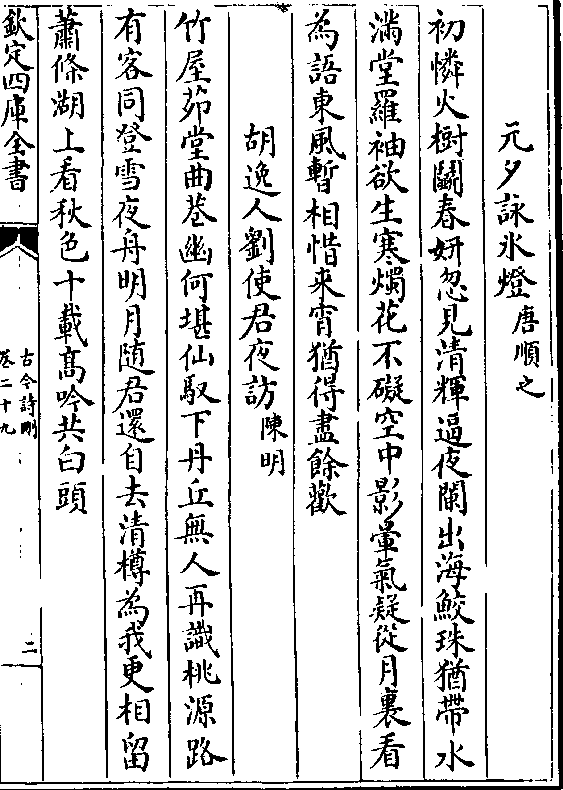 元夕詠氷燈唐順之
初憐火樹鬬春妍忽見清輝逼夜闌出海鮫珠猶帶水
滿堂羅袖欲生寒燭花不礙空中影暈氣疑從月裏看
為語東風暫相惜来宵猶得盡餘歡
胡逸人劉使君夜訪陳明
竹屋茆堂曲巷幽何堪仙馭下丹丘無人再識桃源路
有客同登雪夜舟明月随君還自去清樽為我更相留
蕭條湖上看秋色十載髙吟共白頭
欽定四庫全書
古今詩刪
卷二十九
二